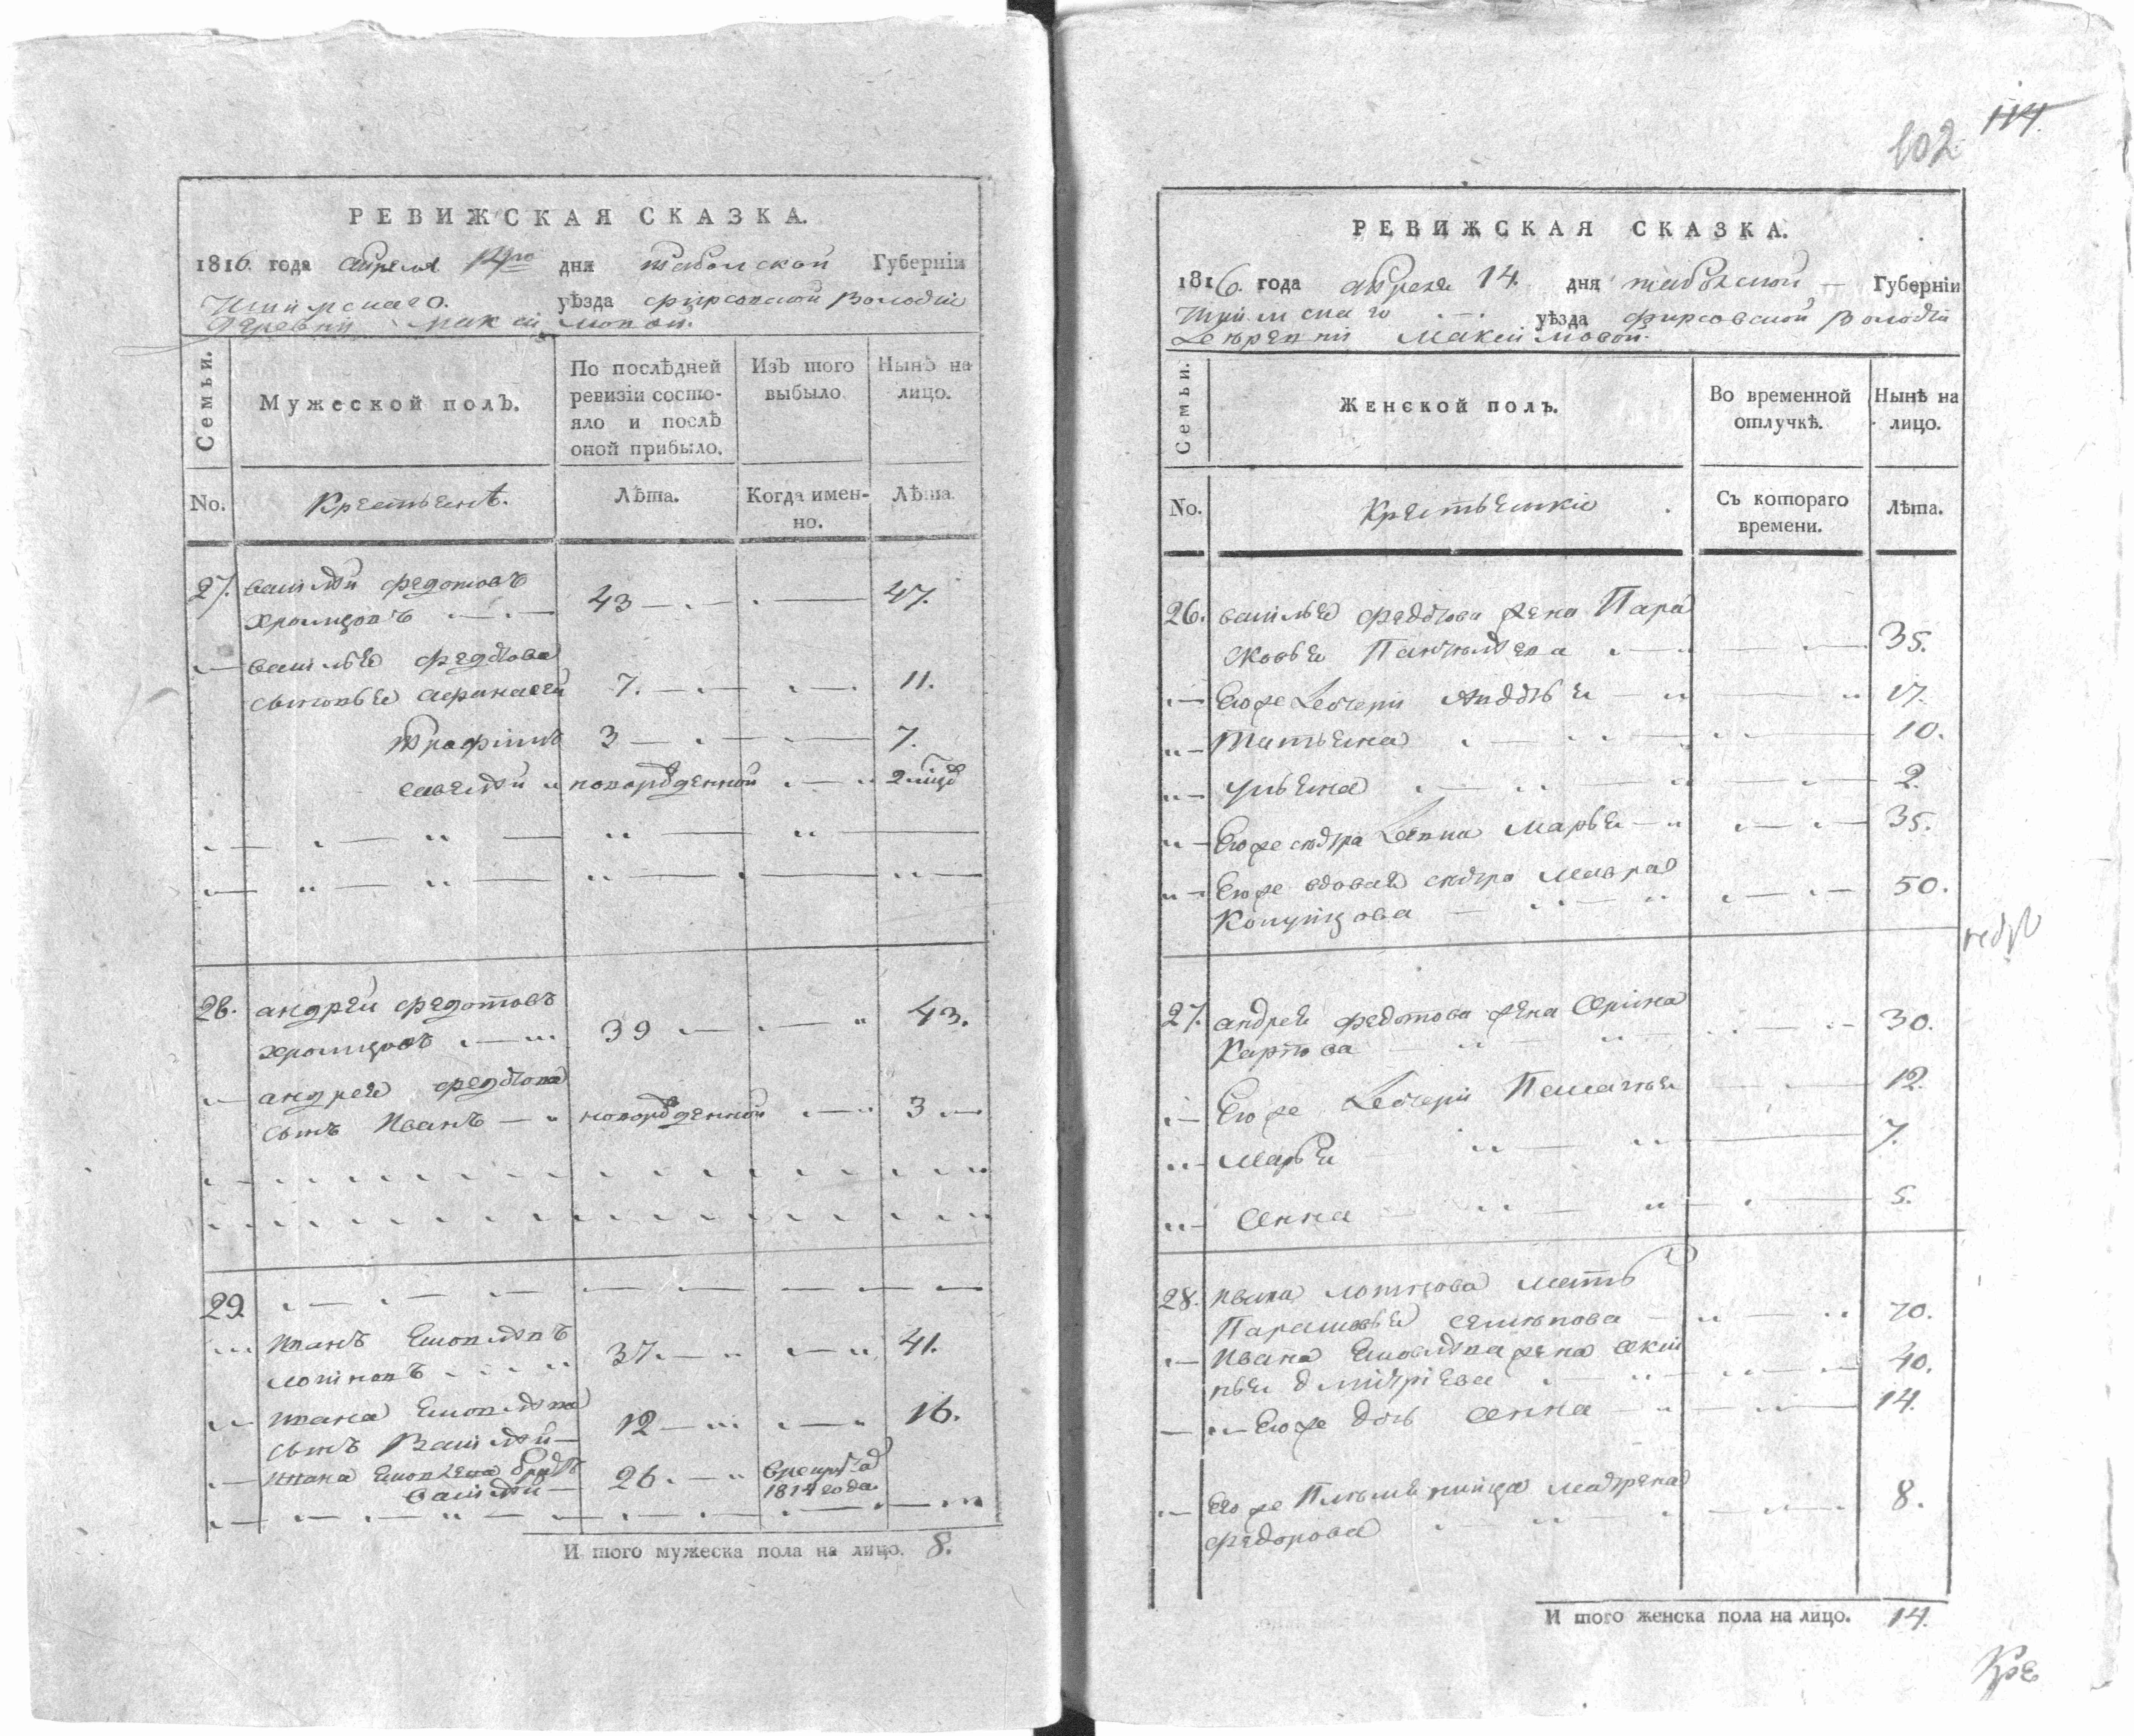 РЕВИЖСКАЯ СКАЗКА.
1816. года апреля 14го дня тобольской Губерніи
Ишимскаго. уѣзда фирсовской волости
деревни максимовой.
Семьи.
Мужеской полъ.
По послѣдней
ревизіи состо-
яло и послѣ
оной прибыло.
Изъ того
выбыло
Нынѣ на
лицо.
No.
Крестьянѣ.
Лѣта.
Когда имен-
но.
Лѣта.
27. василей федотовъ
хромцовъ 43 47.
василья федотова
сыновья афанасей 7. 11.
трофимъ 3 7.
савелей новорожденной 2
28. андрей федотовъ
хромцовъ 39 43.
андрея федотова
сынъ иванъ новорожденной 3
29.
иванъ
логиновъ 37. 41.
ивана
сынъ василей 12 16.
ивана братъ
василей 26. 1814 года
И того мужеска пола на лицо. 8.
102 114.
РЕВИЖСКАЯ СКАЗКА.
1816. года апреля 14. дня тобольской Губерніи
Ишимскаго уѣзда фирсовской волости
деревни Максимовой.
Семьи.
Женской полъ.
Во временной
отлучкѣ.
Нынѣ на
лицо.
No.
Крестьянки
Съ котораго
времени.
Лѣта.
26. василья федотова жена Пара
сковья 35.
Ево же дочери 17.
татьяна 10.
ульяна 2.
Ево же сестра марья 35.
Ево же вдовая сестра мавра 50.
27. андрея федотова жена Орина
Карпова 30.
Ево же дочери Пелагея 12.
марья 7.
анна 5.
28. ивана логинова мать
Парасковья семенова 70.
ивана жена акили
нья дмитріева 40.
Ево же дочь анна 14.
Ево же племянница матрена
федорова 8.
И того женска пола на лицо. 14.
Кре